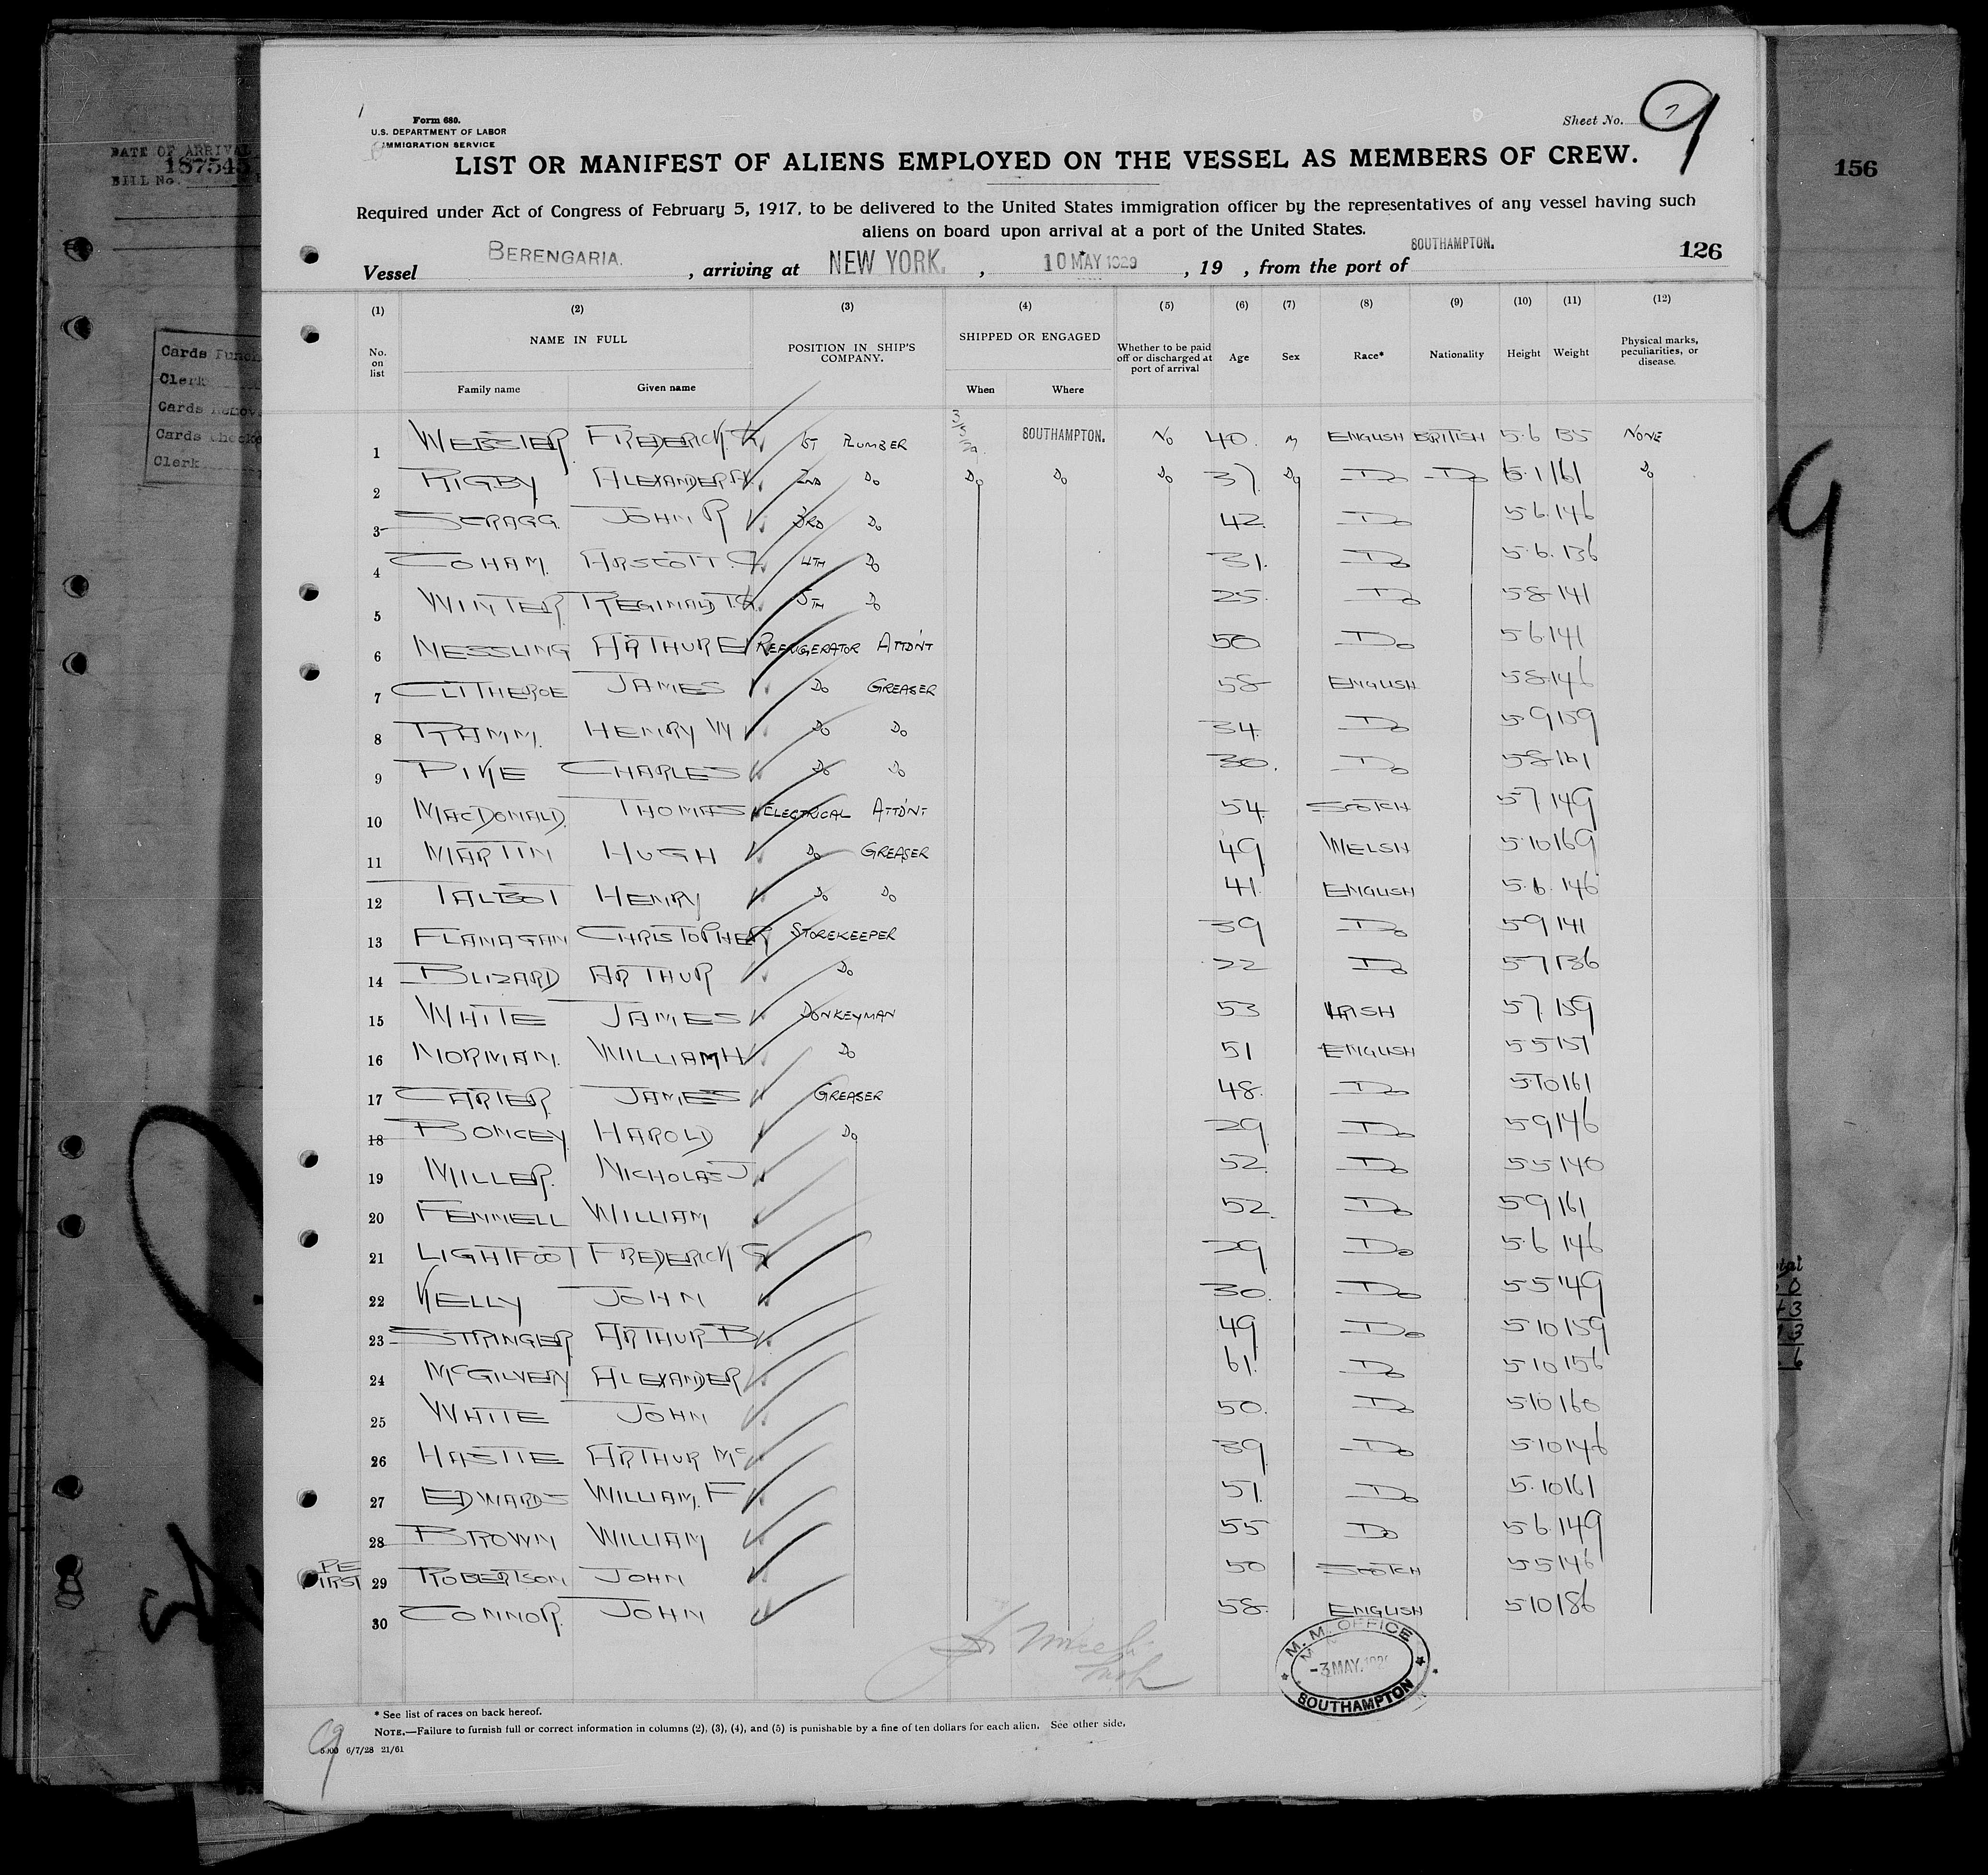 Form 680.
U.S. DEPARTMENT OF LABOR
IMMIGRATION SERVICE
Sheet No. 9
DATE OF ARRIVAL
187545
BILL No.
156
LIST OR MANIFEST OF ALIENS EMPLOYED ON THE VESSEL AS MEMBERS OF CREW.
Required under Act of Congress of February 5, 1917, to be delivered to the United States immigration officer by the representatives of any vessel having such
aliens on board upon arrival at a port of the United States.
126
Vessel BERENGARIA. , arriving at NEW YORK. , 10 MAY 1929 , 19 , from the port of SOUTHAMPTON.
(1) (2) (3) (4) (5) (6) (7) (8) (9) (10) (11) (12)
No. on list NAME IN FULL Family name Given name POSITION IN SHIP'S COMPANY. SHIPPED OR ENGAGED When Where Whether to be paid off or discharged at port of arrival Age Sex Race* Nationality Height Weight Physical marks, peculiarities, or disease.
1 WEBSTER FREDERICK 1ST PLUMBER SOUTHAMPTON. NO 40 M ENGLISH BRITISH 5.6 135 NONE
2 RIGBY ALEXANDER 2ND DO DO DO DO 37 DO DO DO 5.1 161 DO
3 SCRAGG JOHN R 3RD DO 42 DO 5.6 146
4 COHAM ARSCOTT 4TH DO 31 DO 5.6 136
5 WINTER REGINALD T. 5TH DO 25 DO 5 8 141
6 NESSLING ARTHUR E REFRIGERATOR ATTD'NT 50 DO 5 6 141
7 CLITHEROE JAMES DO GREASER 58 ENGLISH 5 8 146
8 RAMM HENRY W DO DO 34 DO 5 9 159
9 PIKE CHARLES DO DO 30 DO 5 8 161
10 MACDONALD THOMAS ELECTRICAL ATTD'NT 54 SCOTCH 5 7 149
11 MARTIN HUGH DO GREASER 49 WELSH 5 10 169
12 TALBOT HENRY DO DO 41 ENGLISH 5.6 146
13 FLANAGAN CHRISTOPHER STOREKEEPER 39 DO 5 9 141
14 BLIZARD ARTHUR DO 22 DO 5 7 136
15 WHITE JAMES DONKEYMAN 53 IRISH 5 7 159
16 NORMAN WILLIAM H DO 51 ENGLISH 5 5 151
17 CARTER JAMES GREASER 48 DO 5 10 161
18 BONCEY HAROLD DO 29 DO 5 9 146
19 MILLER NICHOLAS J 52 DO 5 5 140
20 FENNELL WILLIAM 52 DO 5 9 161
21 LIGHTFOOT FREDERICK G 29 DO 5.6 146
22 KELLY JOHN 30 DO 5 5 149
23 STRINGER ARTHUR B 49 DO 5 10 159
24 MCGILVERY ALEXANDER 61 DO 5 10 156
25 WHITE JOHN 50 DO 5 10 160
26 HASTIE ARTHUR MC 39 DO 5 10 146
27 EDWARDS WILLIAM. F 51 DO 5.10 161
28 BROWN WILLIAM 55 DO 5 6 149
29 ROBERTSON JOHN 50 SCOTCH 5 5 146
30 CONNOR JOHN 58 ENGLISH 5 10 186
M. M. OFFICE
-3 MAY.192
SOUTHAMPTON
* See list of races on back hereof.
NOTE.—Failure to furnish full or correct information in columns (2), (3), (4), and (5) is punishable by a fine of ten dollars for each alien. See other side.
6/7/28 21/61
9
9